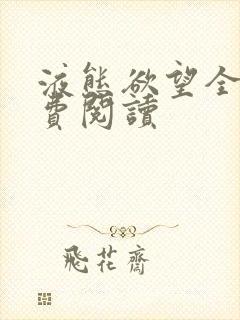 液態欲望全
費閱讀
飛花齋